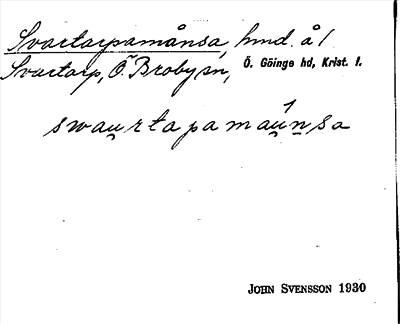 Svartarpamånsa, hmd. å /
Svartarp, Ö. Broby sn, Ö. Göinge hd, Krist. l.
swau̯rtapamaú̯n̲sa
JOHN SVENSSON 1930